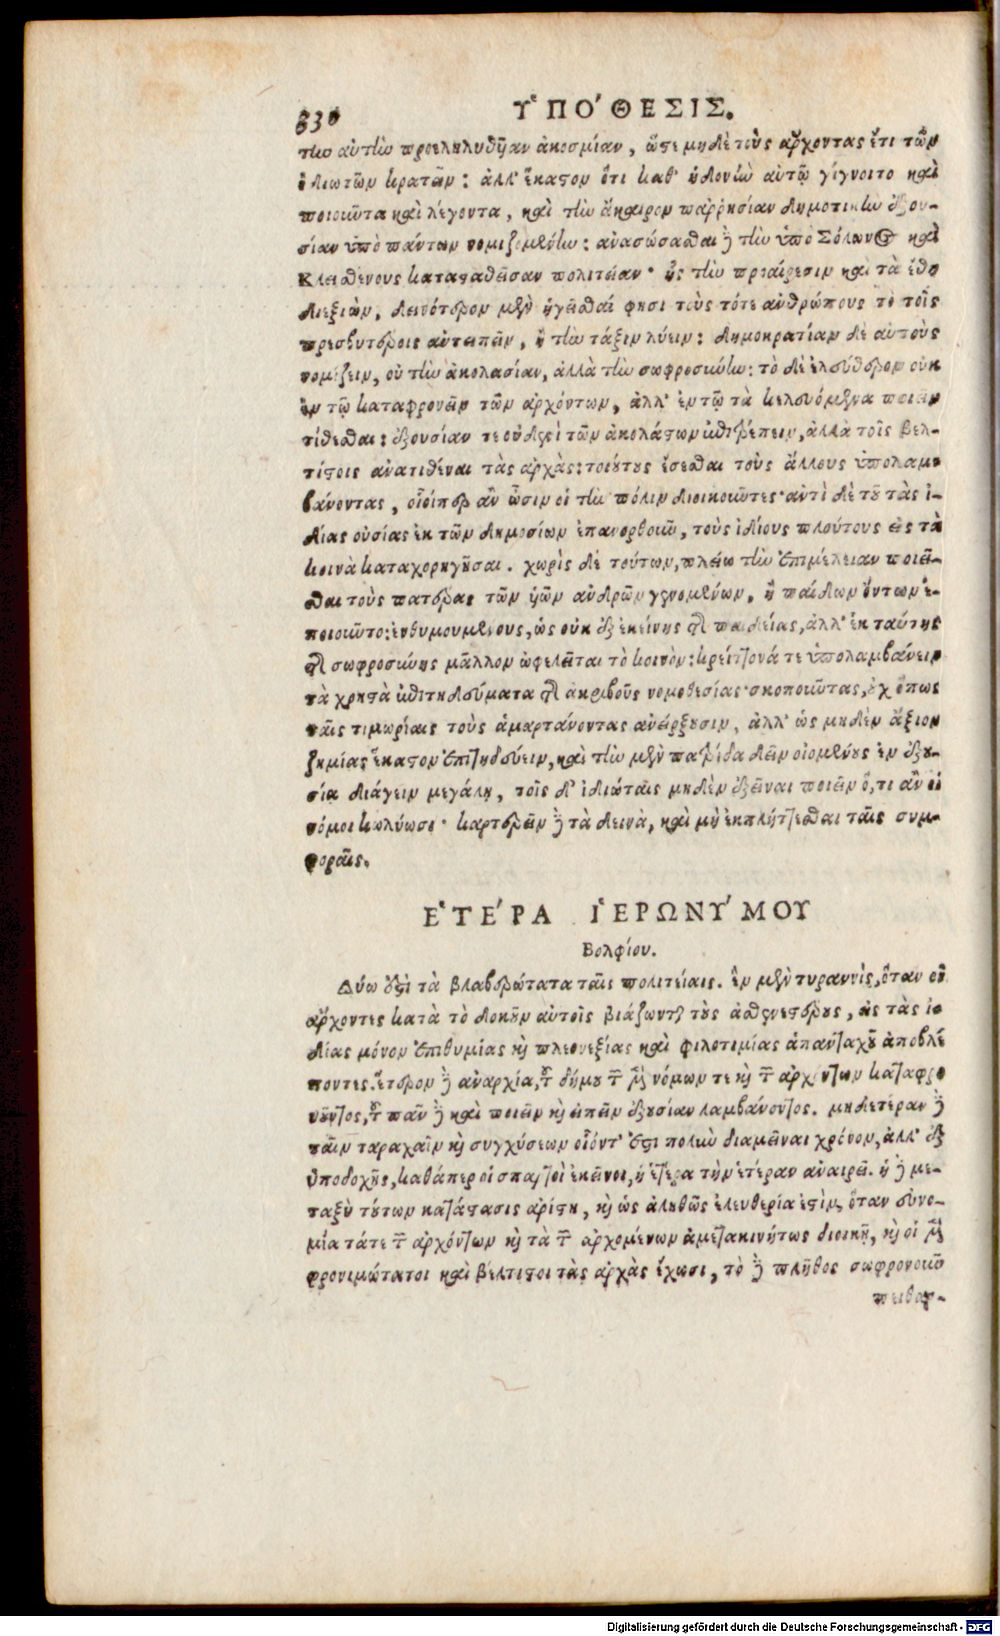 330 ὙΠΌΘΕΣΙΣ.
τὴν αὐτὴν προεληλυθῆαν ἀκοσμίαν, ὥστε μηδὲ τοὺς ἄρχοντας ἔτι τῶν
ἰδιωτῶν κρατεῖν: ἀλλ' ἕκαστον ὅτι καθ' ἡδονὴν αὐτῷ γίγνοιτο καὶ
ποιοῦντα καὶ λέγοντα, καὶ τὴν ἄκαιρον παῤῥησίαν δημοτικὴν ἐξου-
σίαν ὑπὸ πάντων νομιζομένην: ἀνασώσασθαι δὲ τὴν ὑπὸ Σόλωνος καὶ
Κλεισθένους κατασταθεῖσαν πολιτείαν· ἧς τὴν προαίρεσιν καὶ τὰ ἔθη
διεξιὼν, δεινότερον μὲν ἡγεῖσθαί φησι τοὺς τότε ἀνθρώπους τὸ τοῖς
πρεσβυτέροις ἀντειπεῖν, ἢ τὴν τάξιν λύειν: δημοκρατίαν δὲ αὐτοὺς
νομίζειν, οὐ τὴν ἀκολασίαν, ἀλλὰ τὴν σωφροσύνην: τὸ δὲ ἐλεύθερον οὐκ
ἐν τῷ καταφρονεῖν τῶν ἀρχόντων, ἀλλ' ἐν τῷ τὰ κελευόμενα ποιεῖν
τίθεσθαι: ἐξουσίαν τε οὐδενὶ τῶν ἀκολάστων ἐπιτρέπειν, ἀλλὰ τοῖς βελ-
τίστοις ἀνατιθέναι τὰς ἀρχὰς: τοιούτους ἔσεσθαι τοὺς ἄλλους ὑπολαμ-
βάνοντας, οἷοίπερ ἂν ὦσιν οἱ τὴν πόλιν διοικοῦντες· ἀντὶ δὲ τοῦ τὰς ἰ-
δίας οὐσίας ἐκ τῶν δημοσίων ἐπανορθοῦν, τοὺς ἰδίους πλούτους εἰς τὰ
κοινὰ καταχορηγῆσαι. χωρὶς δὲ τούτων, πλείω τὴν ἐπιμέλειαν ποιεῖ-
σθαι τοὺς πατέρας τῶν ὑῶν ἀνδρῶν γενομένων, ἢ παίδων ὄντων ἐ-
ποιοῦντο: ἐνθυμουμένους, ὡς οὐκ ἐξ ἐκείνης τῆς παιδείας, ἀλλ' ἐκ ταύτης
τῆς σωφροσύνης μᾶλλον ὠφελεῖται τὸ κοινὸν: κρείττονά τε ὑπολαμβάνειν
τὰ χρηστὰ ἐπιτηδεύματα τῆς ἀκριβοῦς νομοθεσίας· σκοποῦντας, οὐχ ὅπως
ταῖς τιμωρίαις τοὺς ἁμαρτάνοντας ἀνείρξουσιν, ἀλλ' ὡς μηδὲν ἄξιον
ζημίας ἕκαστον ἐπιτηδεύειν, καὶ τὴν μὲν πατρίδα δεῖν οἰομένους ἐν ἐξου-
σίᾳ διάγειν μεγάλῃ, τοῖς δ' ἰδιώταις μηδὲν ἐξεῖναι ποιεῖν ὅ,τι ἂν οἱ
νόμοι κωλύωσι· καρτερεῖν δὲ τὰ δεινὰ, καὶ μὴ ἐκπλήττεσθαι ταῖς συμ-
φοραῖς.
ἙΤΈΡΑ ἹΕΡΩΝΎΜΟΥ
Βολφίου.
Δύω ἐστὶ τὰ βλαβερώτατα ταῖς πολιτείαις. ἓν μὲν τυραννὶς, ὅταν οἱ
ἄρχοντες κατὰ τὸ δοκοῦν αὐτοῖς βιάζωνται τοὺς ἀσθενεστέρους, εἰς τὰς ἰ-
δίας μόνον ἐπιθυμίας καὶ πλεονεξίας καὶ φιλοτιμίας ἁπανταχοῦ ἀποβλέ
ποντες. ἕτερον δὲ ἀναρχία, τοῦ δήμου τῶν μὲν νόμων τε καὶ τῶν ἀρχόντων καταφρο
νοῦντος, τοῦ πᾶν δὲ καὶ ποιεῖν καὶ εἰπεῖν ἐξουσίαν λαμβάνοντος. μηδετέραν δὲ
ταῖν ταραχαῖν καὶ συγχύσεων οἷόντ' ἐστι πολὺν διαμεῖναι χρόνον, ἀλλ' ἐξ
ὑποδοχῆς, καθάπερ οἱ σπαρτοὶ ἐκεῖνοι, ἡ ἑτέρα τὴν ἑτέραν ἀναιρεῖ. ἡ δὲ με-
ταξὺ τούτων κατάστασις ἀρίστη, καὶ ὡς ἀληθῶς ἐλευθερία ἐστὶν, ὅταν εὐνο-
μία τάτε τῶν ἀρχόντων καὶ τὰ τῶν ἀρχομένων ἀμετακινήτως διοικῇ, καὶ οἱ μὲν
φρονιμώτατοι καὶ βέλτιστοι τὰς ἀρχὰς ἔχωσι, τὸ δὲ πλῆθος σωφρονοῦν
πειθαρ-
Digitalisierung gefördert durch die Deutsche Forschungsgemeinschaft - DFG